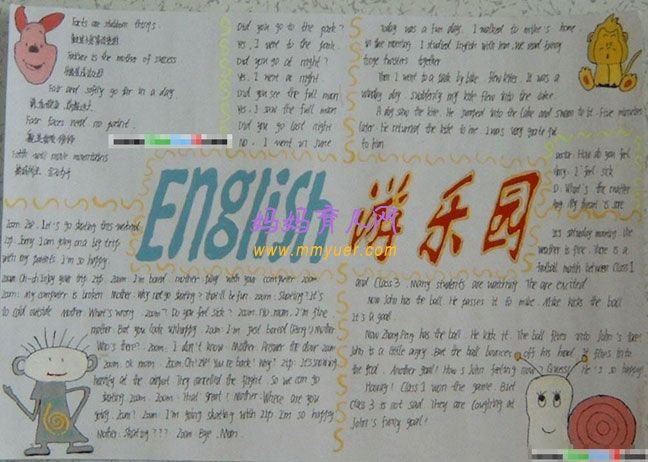 Facts are stubborn things.
Failure is the mother of success
Fair and softly go far in a day.
Fair faces need no paint.
Faith will move mountains
Did you go to the park?
Yes, I went to the park.
Did you go at night?
Yes, I went at night.
Did you see the full moon
Yes, I saw the full moon
Did you go last night
No. I went in June
Today was a fun day. I walked to Mike's home
in the morning. I studied English with him. We read funny
tongue twisters together
Then I went to a park by bike. flew kites. It was a
windy day. suddenly my kite flew into the lake.
A dog saw the kite. He jumped into the lake and swam to it. Five minutes
later. He returned the kite to me. I was very grateful
to him
How do you feel
I feel sick
D. What's the matter
English 游乐园
妈妈育儿网
www.mmyuer.com
Zoom: Zip. Let's go skating this weekend
Zip: Sorry. I am going on a big trip
with my parents. I'm so happy.
Zoom: Oh. Enjoy your trip. Zip. Zoom: I'm bored. Mother: play with your computer. Zoom:
Zoom: my computer is broken. Mother: Why not go skating? It'll be fun. Zoom: Skating? It's
too cold outside. Mother: What's wrong. Zoom? Do you feel sick? Zoom: No. mom. I'm fine
mother: But you look unhappy. Zoom: I'm just bored
Who's there? Zoom: I don't know. Mother: Answer the door Zoom
Zoom: Ok. mom. Zoom: Oh! Zip! You're back! Why? Zip: It's snowing
heavily at the airport. They cancelled the flight. So we can go
skating. Zoom: That great! Mother: Where are you
going. Zoom? Zoom: I'm going skating with Zip. I'm so happy
Mother: Skating??? Zoom: Bye. Mum.
It's Saturday morning. The
weather is fine. There is a
football match between Class 1
and Class 3. Many students are watching. They are excited
Now John has the ball. He passes it to Mike. Mike kicks the ball
It's a goal.
Now Zhang Peng has the ball. He kicks it. The ball flies into John's face!
John is a little angry. But the ball bounces off his head. flies into
the goal. Another goal! How is John feeling now? Guess! He's so happy.
Hooray! Class 1 won the game. But
Class 3 is not sad. They are laughing at
John's funny goal!